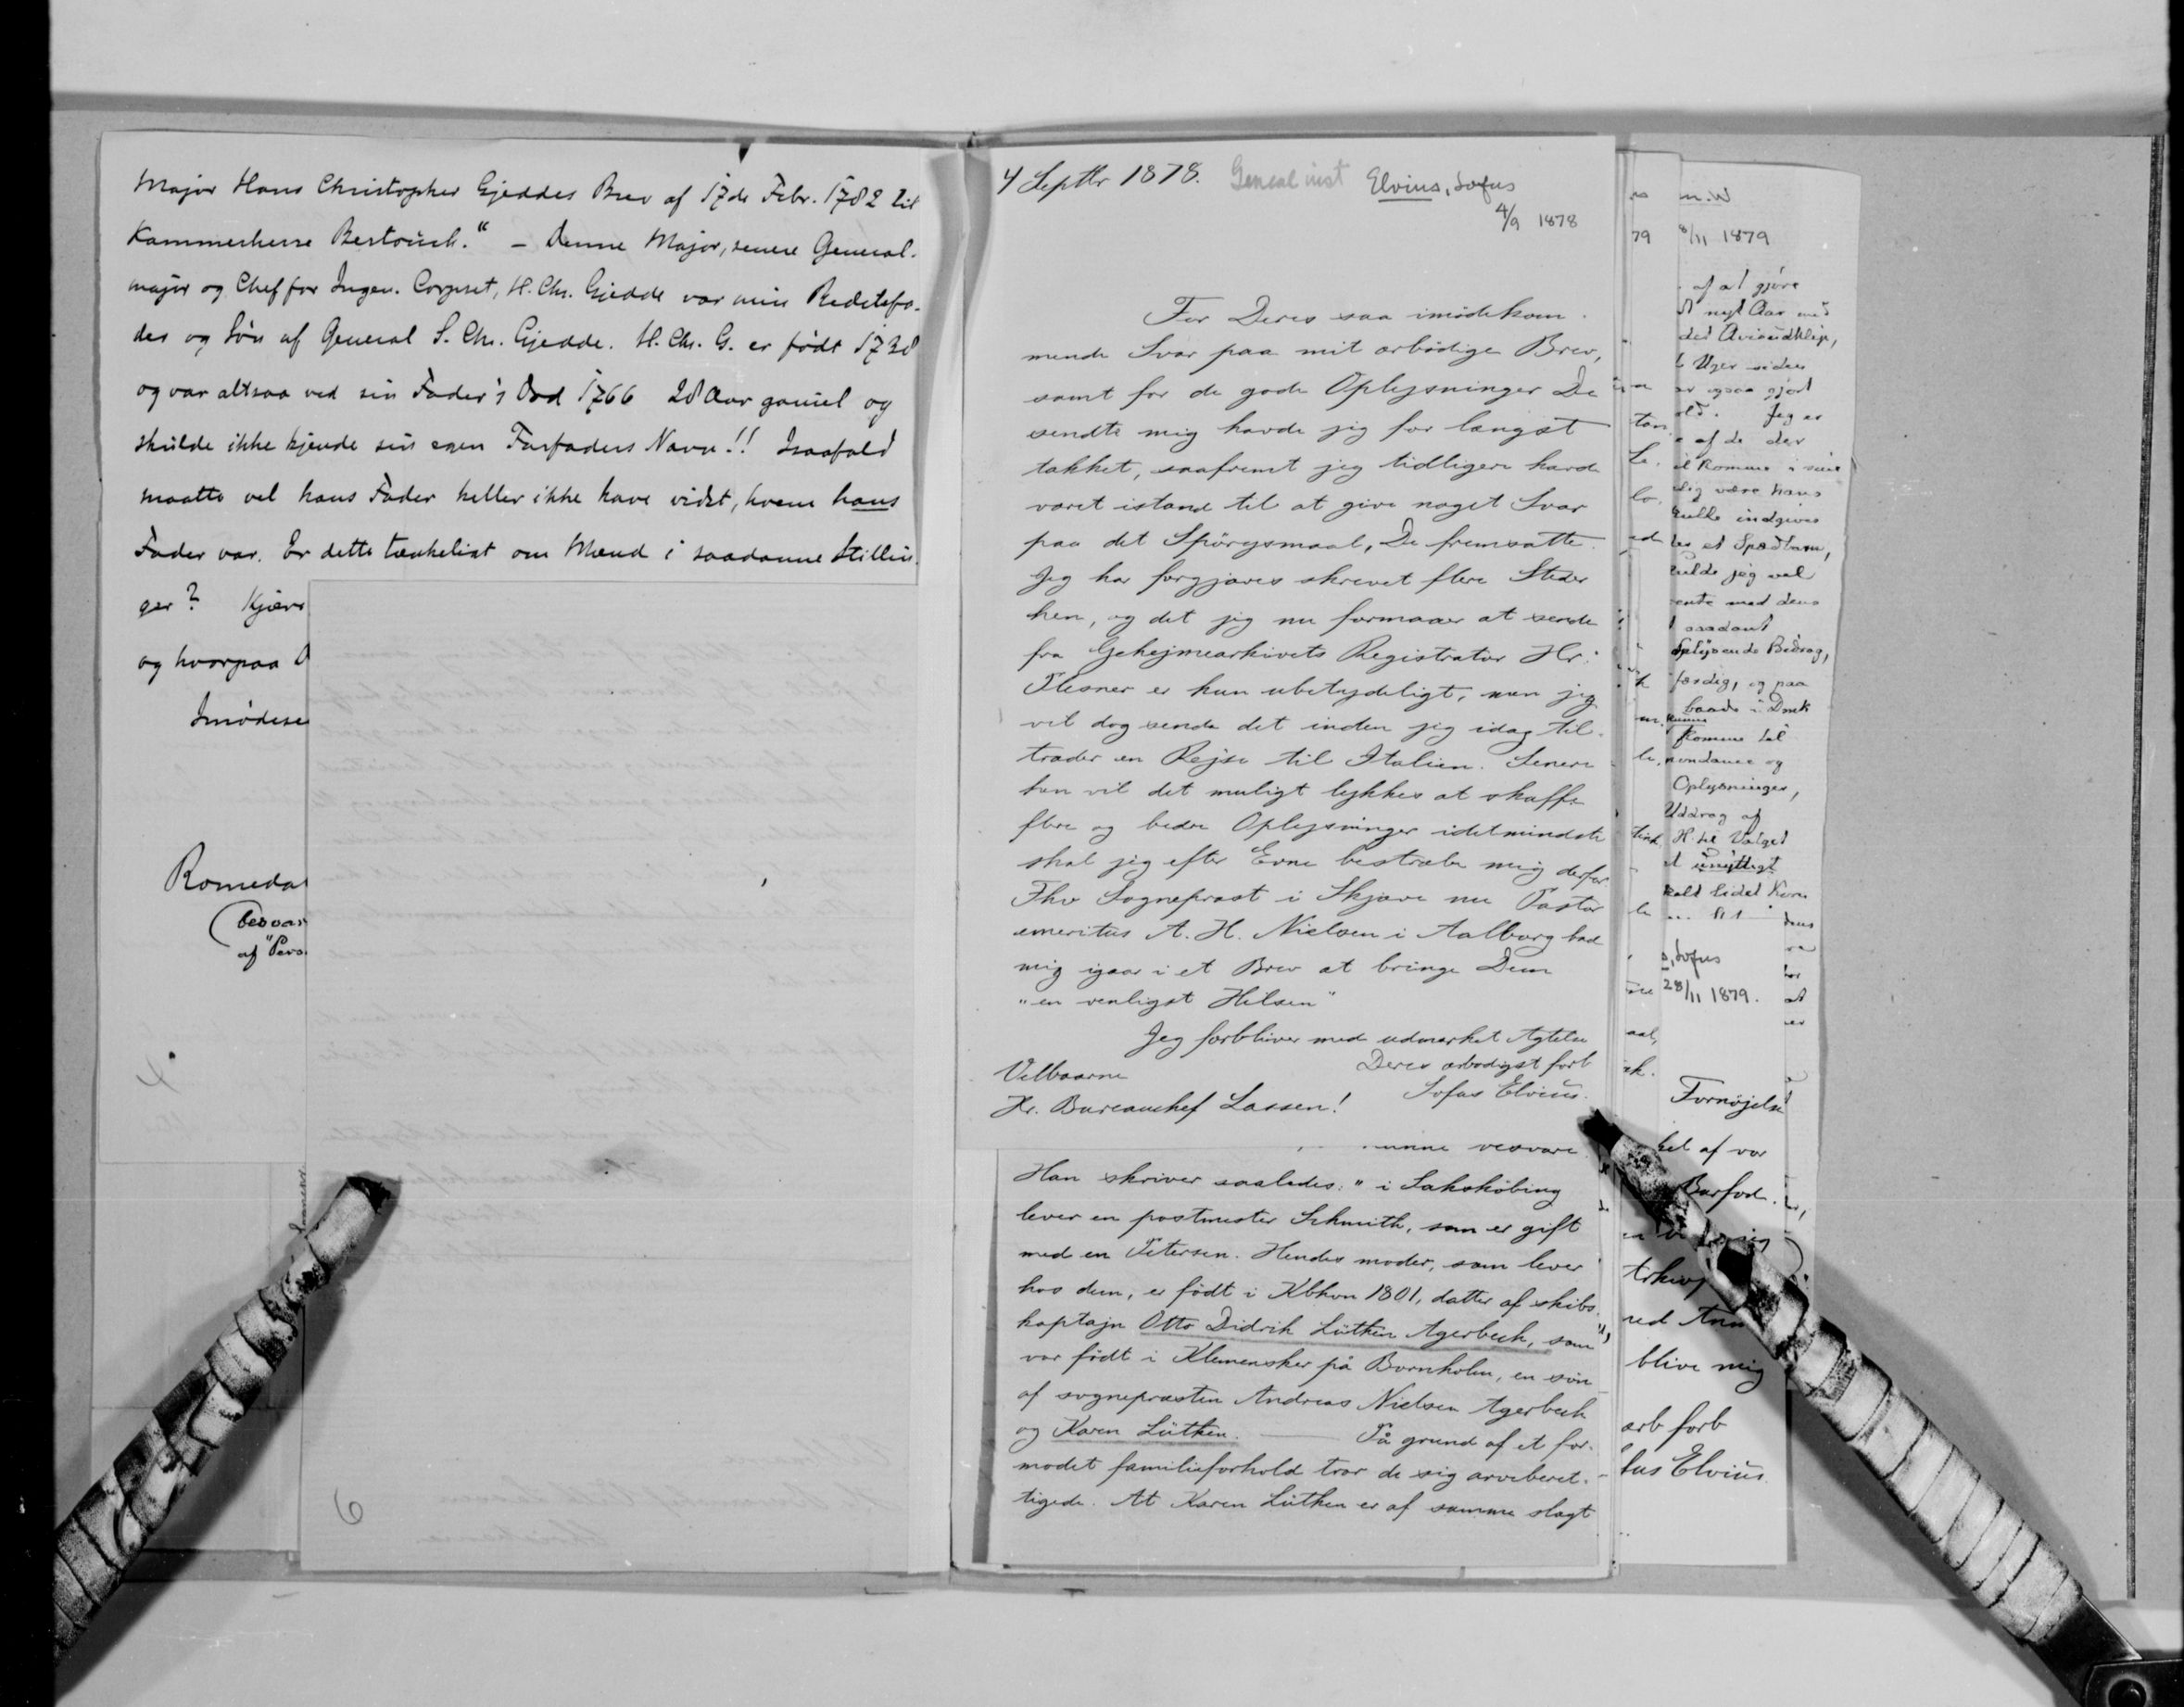 Major Hans Christopher Gjeddes Brev af 17de Febr. 1782 til
Kammerherre Bertouch." – Denne Major, senere General-
major og Chef for Ingen. Corpset, H. Chr. Gjedde var min Bedstefa-
der og Søn af General S. Chr. Gjedde. H. Chr. G. er født 1738
og var altsaa ved sin Fader's Død 1766 28 Aar gamel og
skulde ikke kjende sin egen Farfaders Navn!! Isaafald
maatte vel hans Fader heller ikke have vidst, hvem hans
Fader var. Er dette tænkeligt om Mænd i saadanne Stillin-
ger? Kjære
og hvorpaa
Imødese
Romedal
(besvar
af "Pers.
6
4 Septbr 1878. Geneal inst Elvius, Sofus
4/9 1878
For Deres saa imødekom-
mende Svar paa mit ærbødige Brev,
samt for de gode Oplysninger De
sendte mig havde jeg for længst
takket, saafremt jeg tidligere havde
været istand til at give noget Svar
paa det Spörgsmaal, De fremsatte.
Jeg har forgjæves skrevet flere Steder
hen, og det jeg nu formaaer at sende
fra Gehejmearkivets Registrator Hr.
Plesner er kun ubetydeligt, men jeg
vil dog sende det inden jeg idag til-
træder en Rejse til Italien. Senere
hen vil det muligt lykkes at skaffe
flere og bedre Oplysninger idetmindste
skal jeg efter Evne bestræbe mig derfor
Fhv Sognepræst i Skjære nu Pastor
emeritus A. H. Nielsen i Aalborg bad
mig igaar i et Brev at bringe Dem
"en venligst Hilsen"
Jeg forbliver med udmærket Agtelse
Deres ærbødigst forb
Sofus Elvius.
Velbaarne
Hr. Bureauchef Lassen!
Han skriver saaledes: "i Sakskøbing
lever en postmester Schmith, som er gift
med en Petersen. Hendes moder, som lever
hos dem, er født i Kbhvn 1801, datter af skibs-
kaptajn Otto Didrik Lütken Agerbech, som
var født i Klemensker på Bornholm, en søn
af sognepræsten Andreas Nielsen Agerbech
og Karen Lütken. — På grund af et for-
modet familieforhold tror de sig arveberet-
tigede. At Karen Lütken er af samme slægt
79
8/11 1879
af at gjøre
nyt Aar med
6 Uger siden
ar ogsaa gjort
old. Jeg er
af de der
dig være hans
indgives
et Spædbarn,
jeg vel
ente med dens
saadant
Oplysende Bidrag,
færdig, og paa
baade i Druk
kunne
komme til
pondance og
Oplysninger,
Uddrag af
H. til Valget
et unyttigt
s, Sofus
28/11 1879.
Fornøjelse
ket af vor
Barfod.
blive mig
ærb forb
fus Elvius